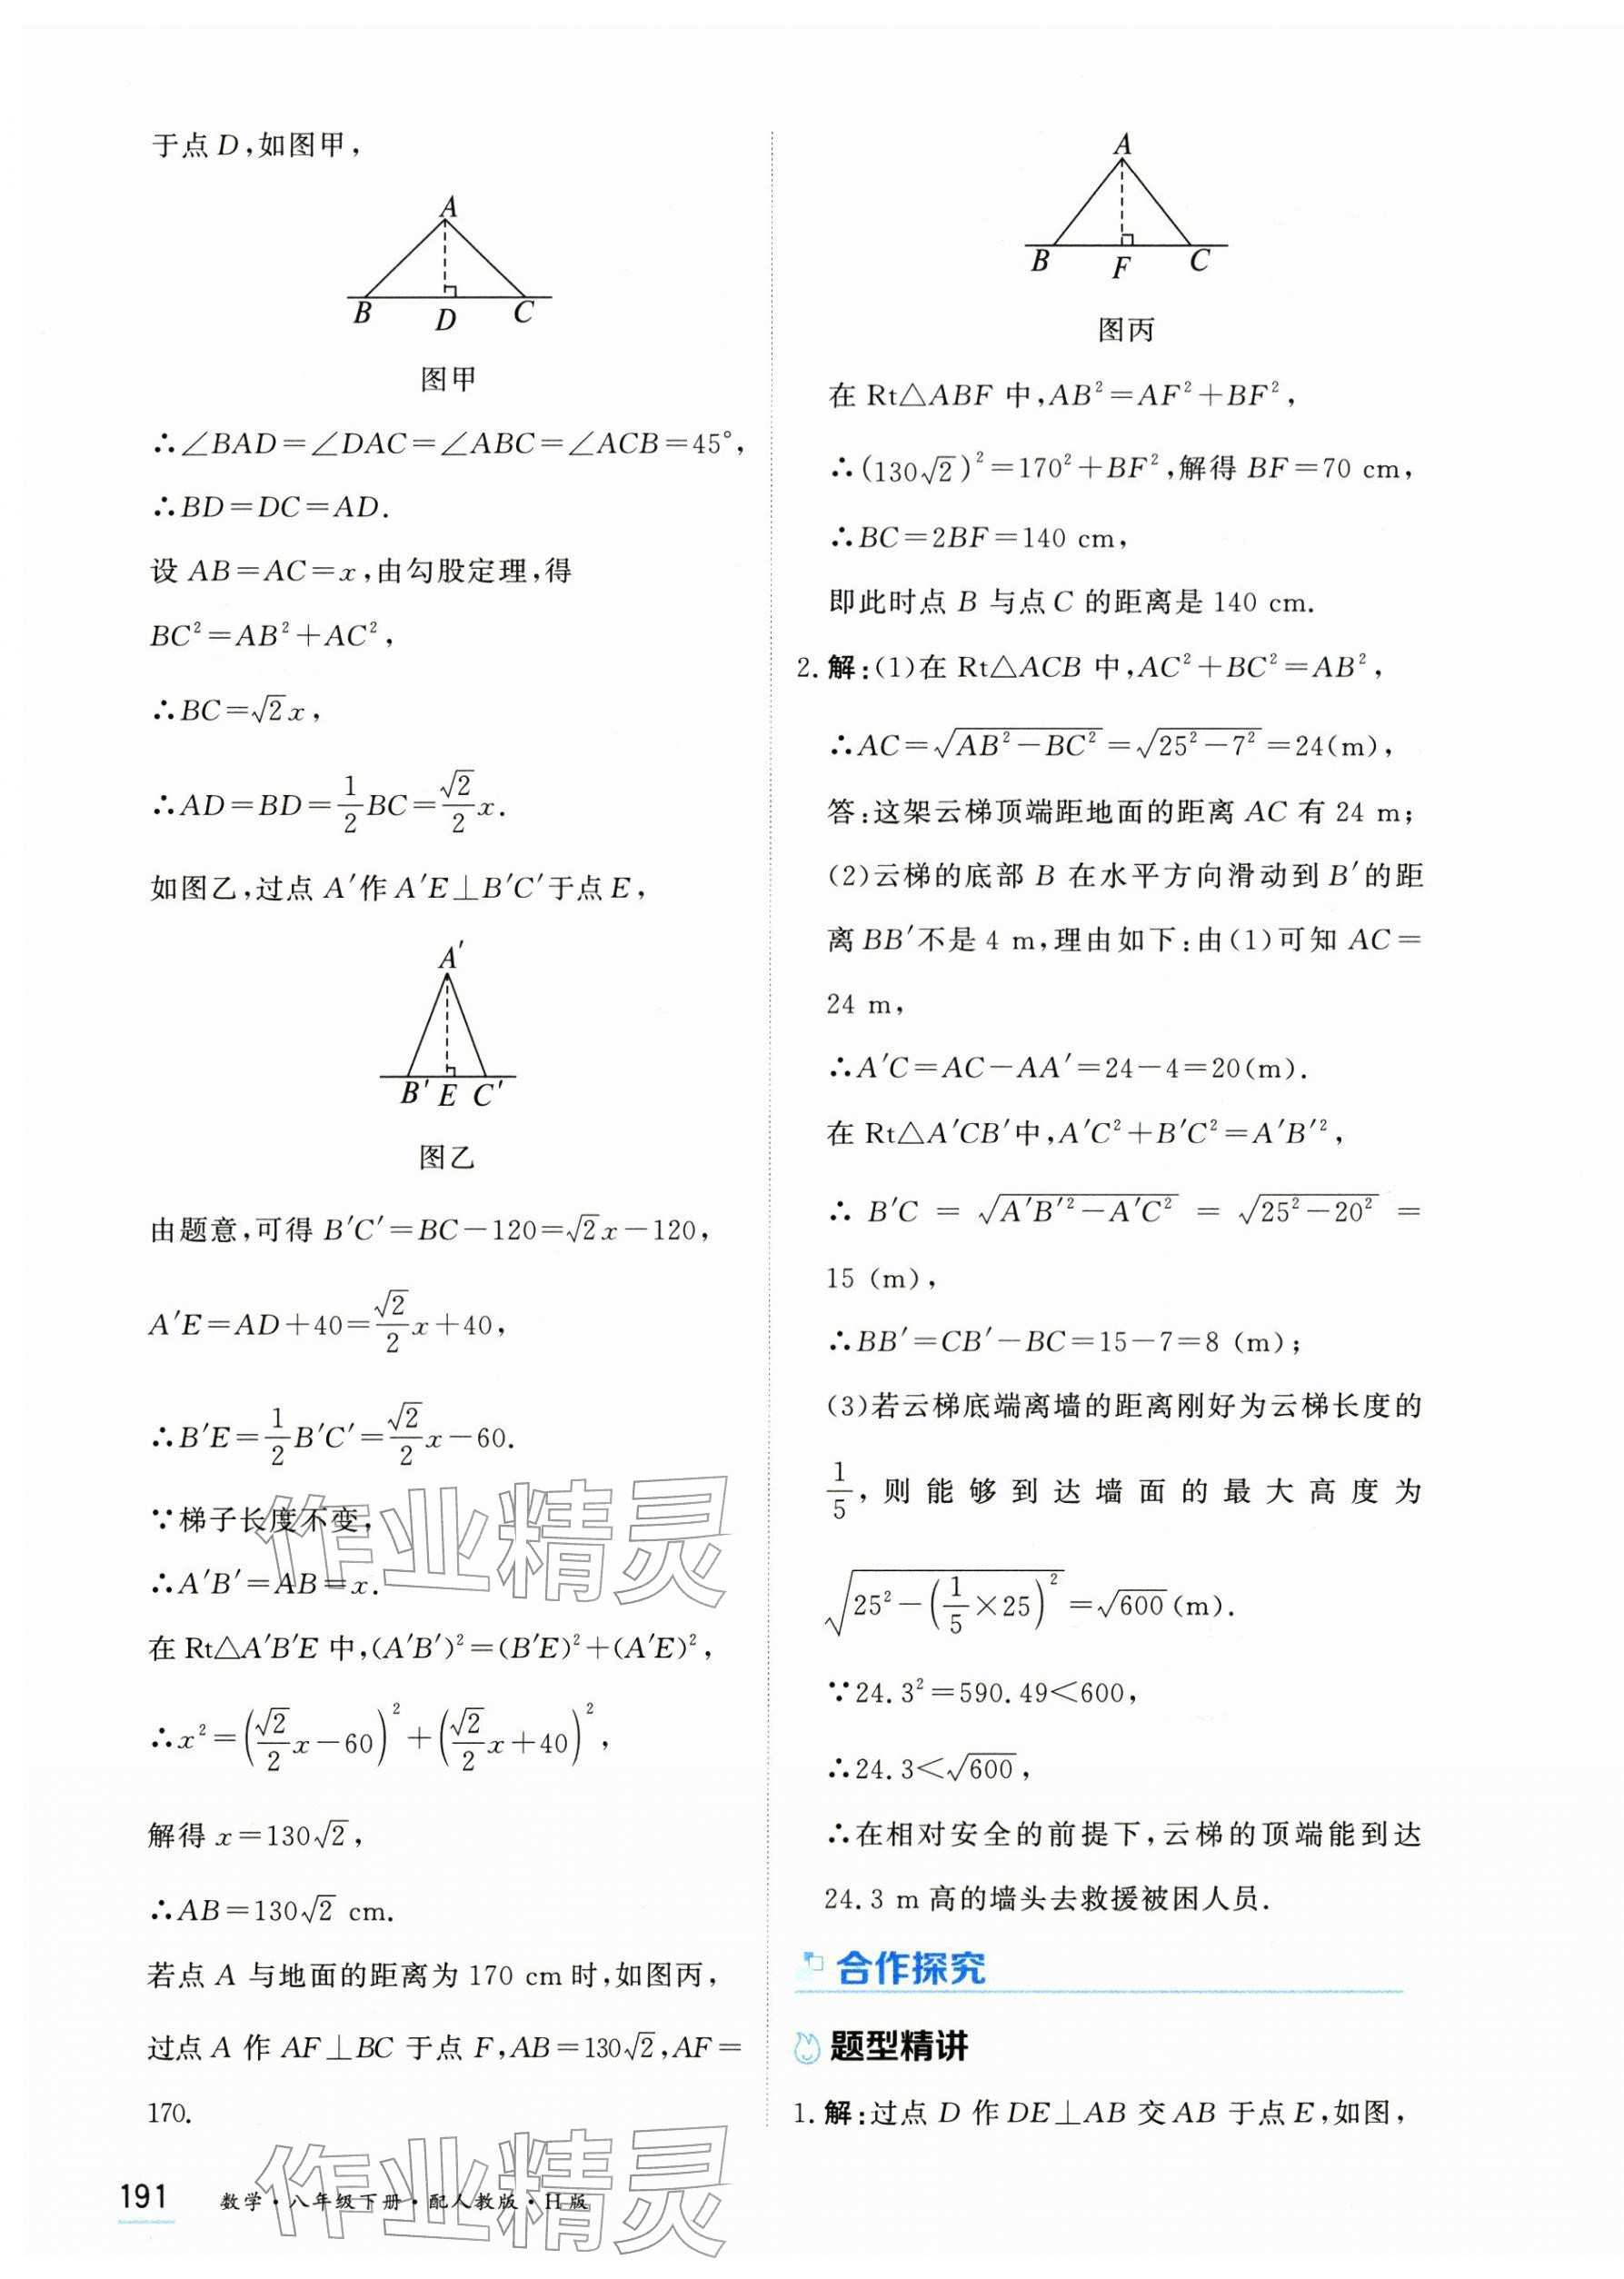 于点 D,如图甲,
A
B D C
图甲
∴∠BAD=∠DAC=∠ABC=∠ACB=45°,
∴BD=DC=AD.
设 AB=AC=x,由勾股定理,得
BC²=AB²+AC²,
∴BC=√2x,
∴AD=BD=1/2BC=√2/2x.
如图乙,过点 A′作 A′E⊥B′C′于点 E,
A′
B′ E C′
图乙
由题意,可得 B′C′=BC-120=√2x-120,
A′E=AD+40=√2/2x+40,
∴B′E=1/2B′C′=√2/2x-60.
∵梯子长度不变,
∴A′B′=AB=x.
在 Rt△A′B′E 中,(A′B′)²=(B′E)²+(A′E)²,
∴x²=(√2/2x-60)²+(√2/2x+40)²,
解得 x=130√2,
∴AB=130√2 cm.
若点 A 与地面的距离为 170 cm时,如图丙,
过点 A 作 AF⊥BC 于点 F,AB=130√2,AF=
170.
A
B F C
图丙
在 Rt△ABF 中,AB²=AF²+BF²,
∴(130√2)²=170²+BF²,解得 BF=70 cm,
∴BC=2BF=140 cm,
即此时点 B 与点 C 的距离是 140 cm.
2.解:(1)在 Rt△ACB 中,AC²+BC²=AB²,
∴AC=√(AB²-BC²)=√(25²-7²)=24(m),
答:这架云梯顶端距地面的距离 AC 有 24 m;
(2)云梯的底部 B 在水平方向滑动到 B′的距
离 BB′不是 4 m,理由如下:由(1)可知 AC=
24 m,
∴A′C=AC-AA′=24-4=20(m).
在 Rt△A′CB′中,A′C²+B′C²=A′B′²,
∴ B′C = √(A′B′²-A′C²) = √(25²-20²) =
15 (m),
∴BB′=CB′-BC=15-7=8 (m);
(3)若云梯底端离墙的距离刚好为云梯长度的
1/5,则能够到达墙面的最大高度为
√(25²-(1/5×25)²)=√600(m).
∵24.3²=590.49<600,
∴24.3<√600,
∴在相对安全的前提下,云梯的顶端能到达
24.3 m高的墙头去救援被困人员.
合作探究
题型精讲
1.解:过点 D 作 DE⊥AB 交 AB 于点 E,如图,
作业精灵
作业精灵
191 数学·八年级下册·配人教版·H版